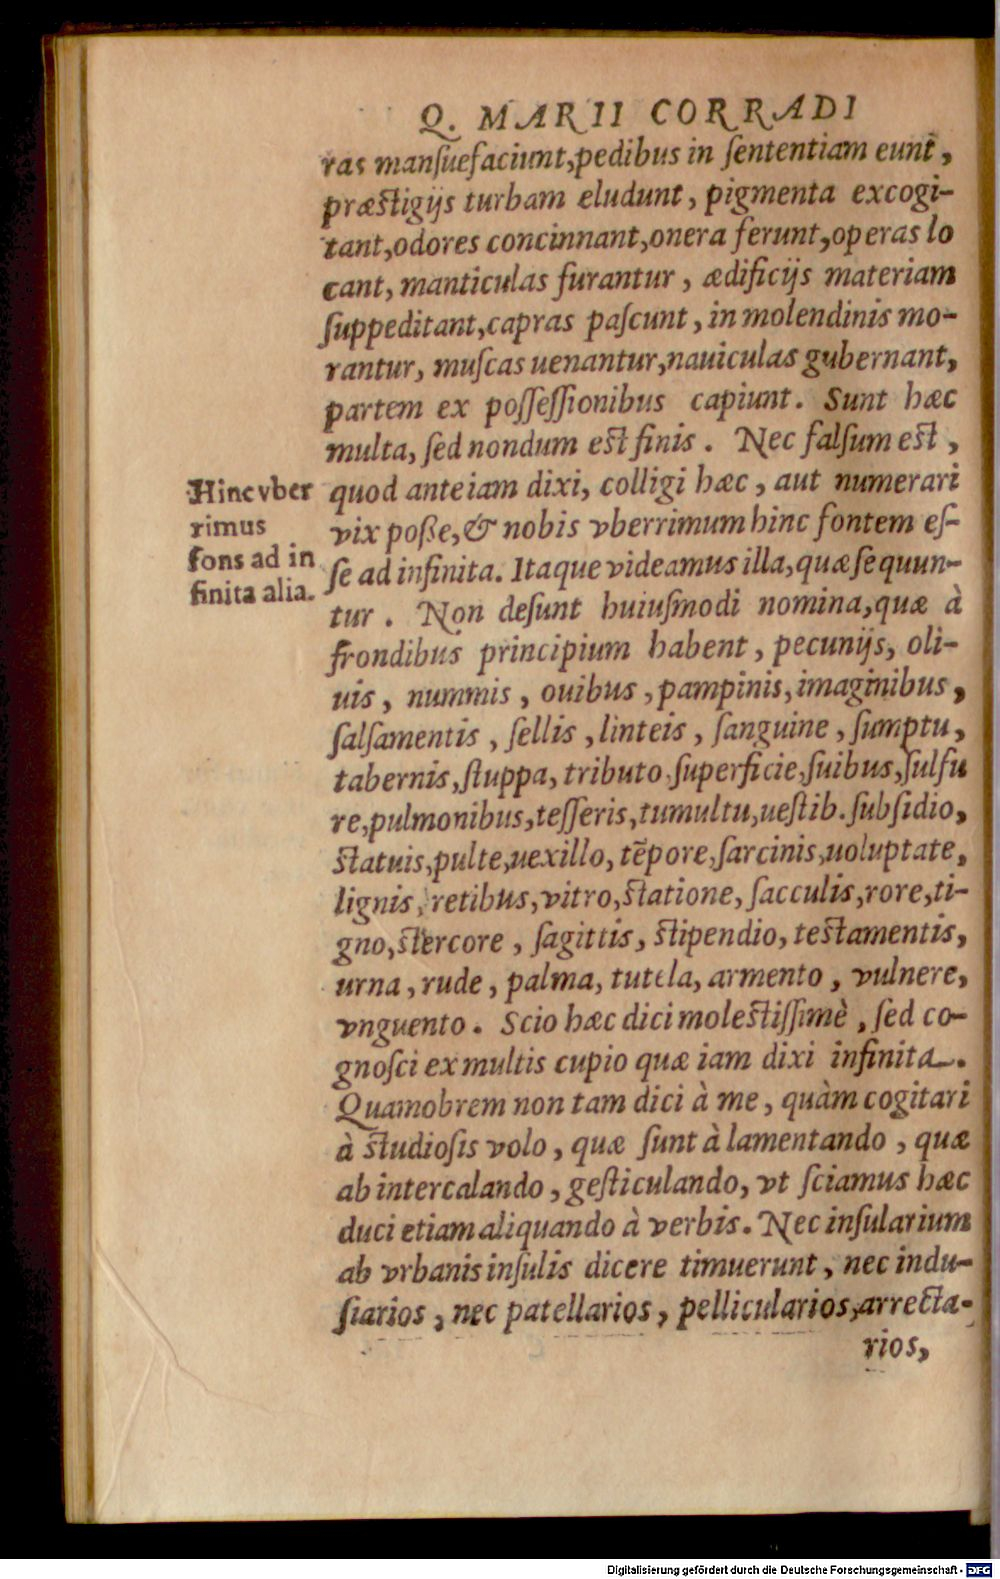 Q. MARII CORRADI
ras mansuefaciunt, pedibus in sententiam eunt,
præstigijs turbam eludunt, pigmenta excogi-
tant, odores concinnant, onera ferunt, operas lo
cant, manticulas furantur, ædificijs materiam
suppeditant, capras pascunt, in molendinis mo-
rantur, muscas uenantur, nauiculas gubernant,
partem ex possessionibus capiunt. Sunt hæc
multa, sed nondum est finis. Nec falsum est,
quod ante iam dixi, colligi hæc, aut numerari
vix poße, & nobis vberrimum hinc fontem es-
se ad infinita. Itaque videamus illa, quæ sequun-
tur. Non desunt huiusmodi nomina, quæ à
frondibus principium habent, pecunijs, oli-
uis, nummis, ouibus, pampinis, imaginibus,
salsamentis, sellis, linteis, sanguine, sumptu,
tabernis, stuppa, tributo, superficie, suibus, sulfu
re, pulmonibus, tesseris, tumultu, uestib. subsidio,
statuis, pulte, uexillo, tēpore, sarcinis, uoluptate,
lignis, retibus, vitro, statione, sacculis, rore, ti-
gno, stercore, sagittis, stipendio, testamentis,
urna, rude, palma, tutela, armento, vulnere,
vnguento. Scio hæc dici molestissimè, sed co-
gnosci ex multis cupio quæ iam dixi infinita.
Quamobrem non tam dici à me, quàm cogitari
à studiosis volo, quæ sunt à lamentando, quæ
ab intercalando, gesticulando, vt sciamus hæc
duci etiam aliquando à verbis. Nec insularium
ab vrbanis insulis dicere timuerunt, nec indu-
siarios, nec patellarios, pellicularios, arrecta-
rios,
Hinc vber
rimus
fons ad in
finita alia.
Digitalisierung gefördert durch die Deutsche Forschungsgemeinschaft - DFG